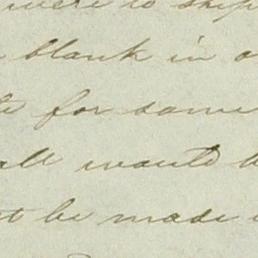 were to ship
blank in
for some
all would
be made